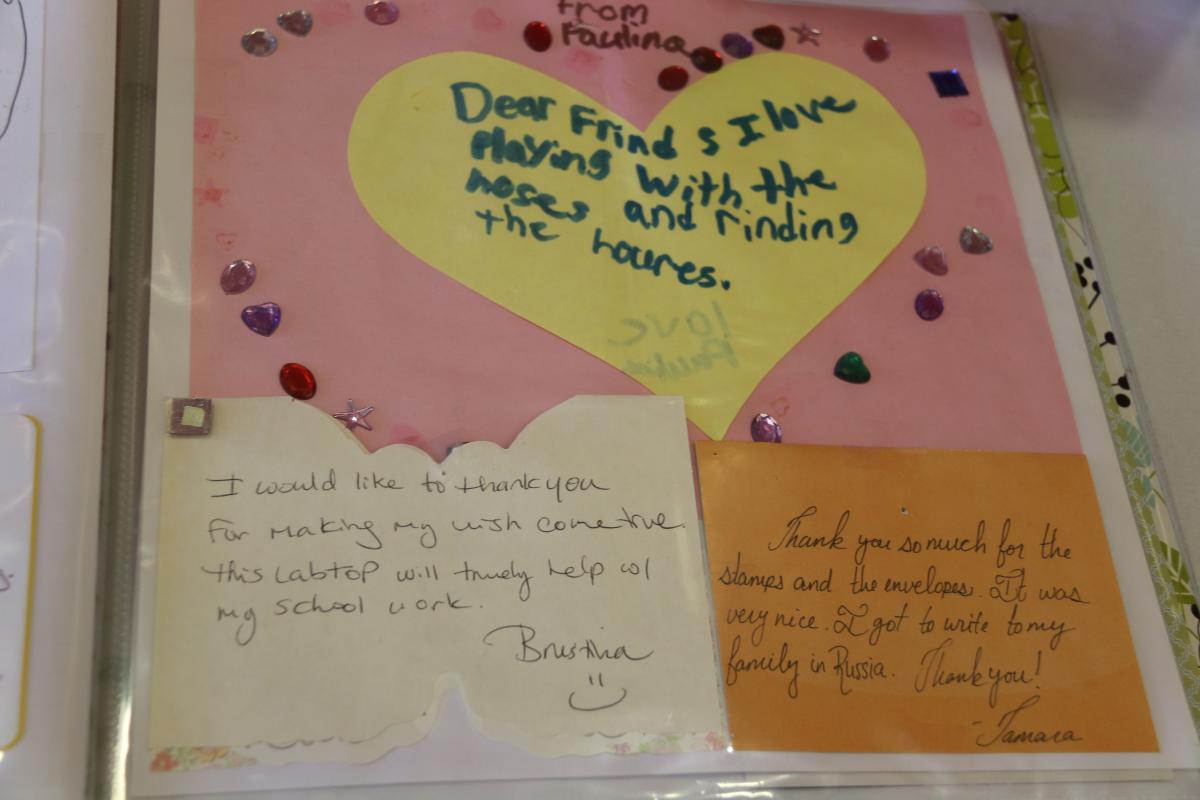 from
Paulina
Dear Frind s I love
Playing with the
hoses and rinding
the houres.
love
I would like to thank you
For making my wish come true.
this Labtop will truely help w/
my school work.
Thank you so much for the
stamps and the envelopes. It was
very nice. I got to write to my
family in Russia. Thank you!
- Tamara